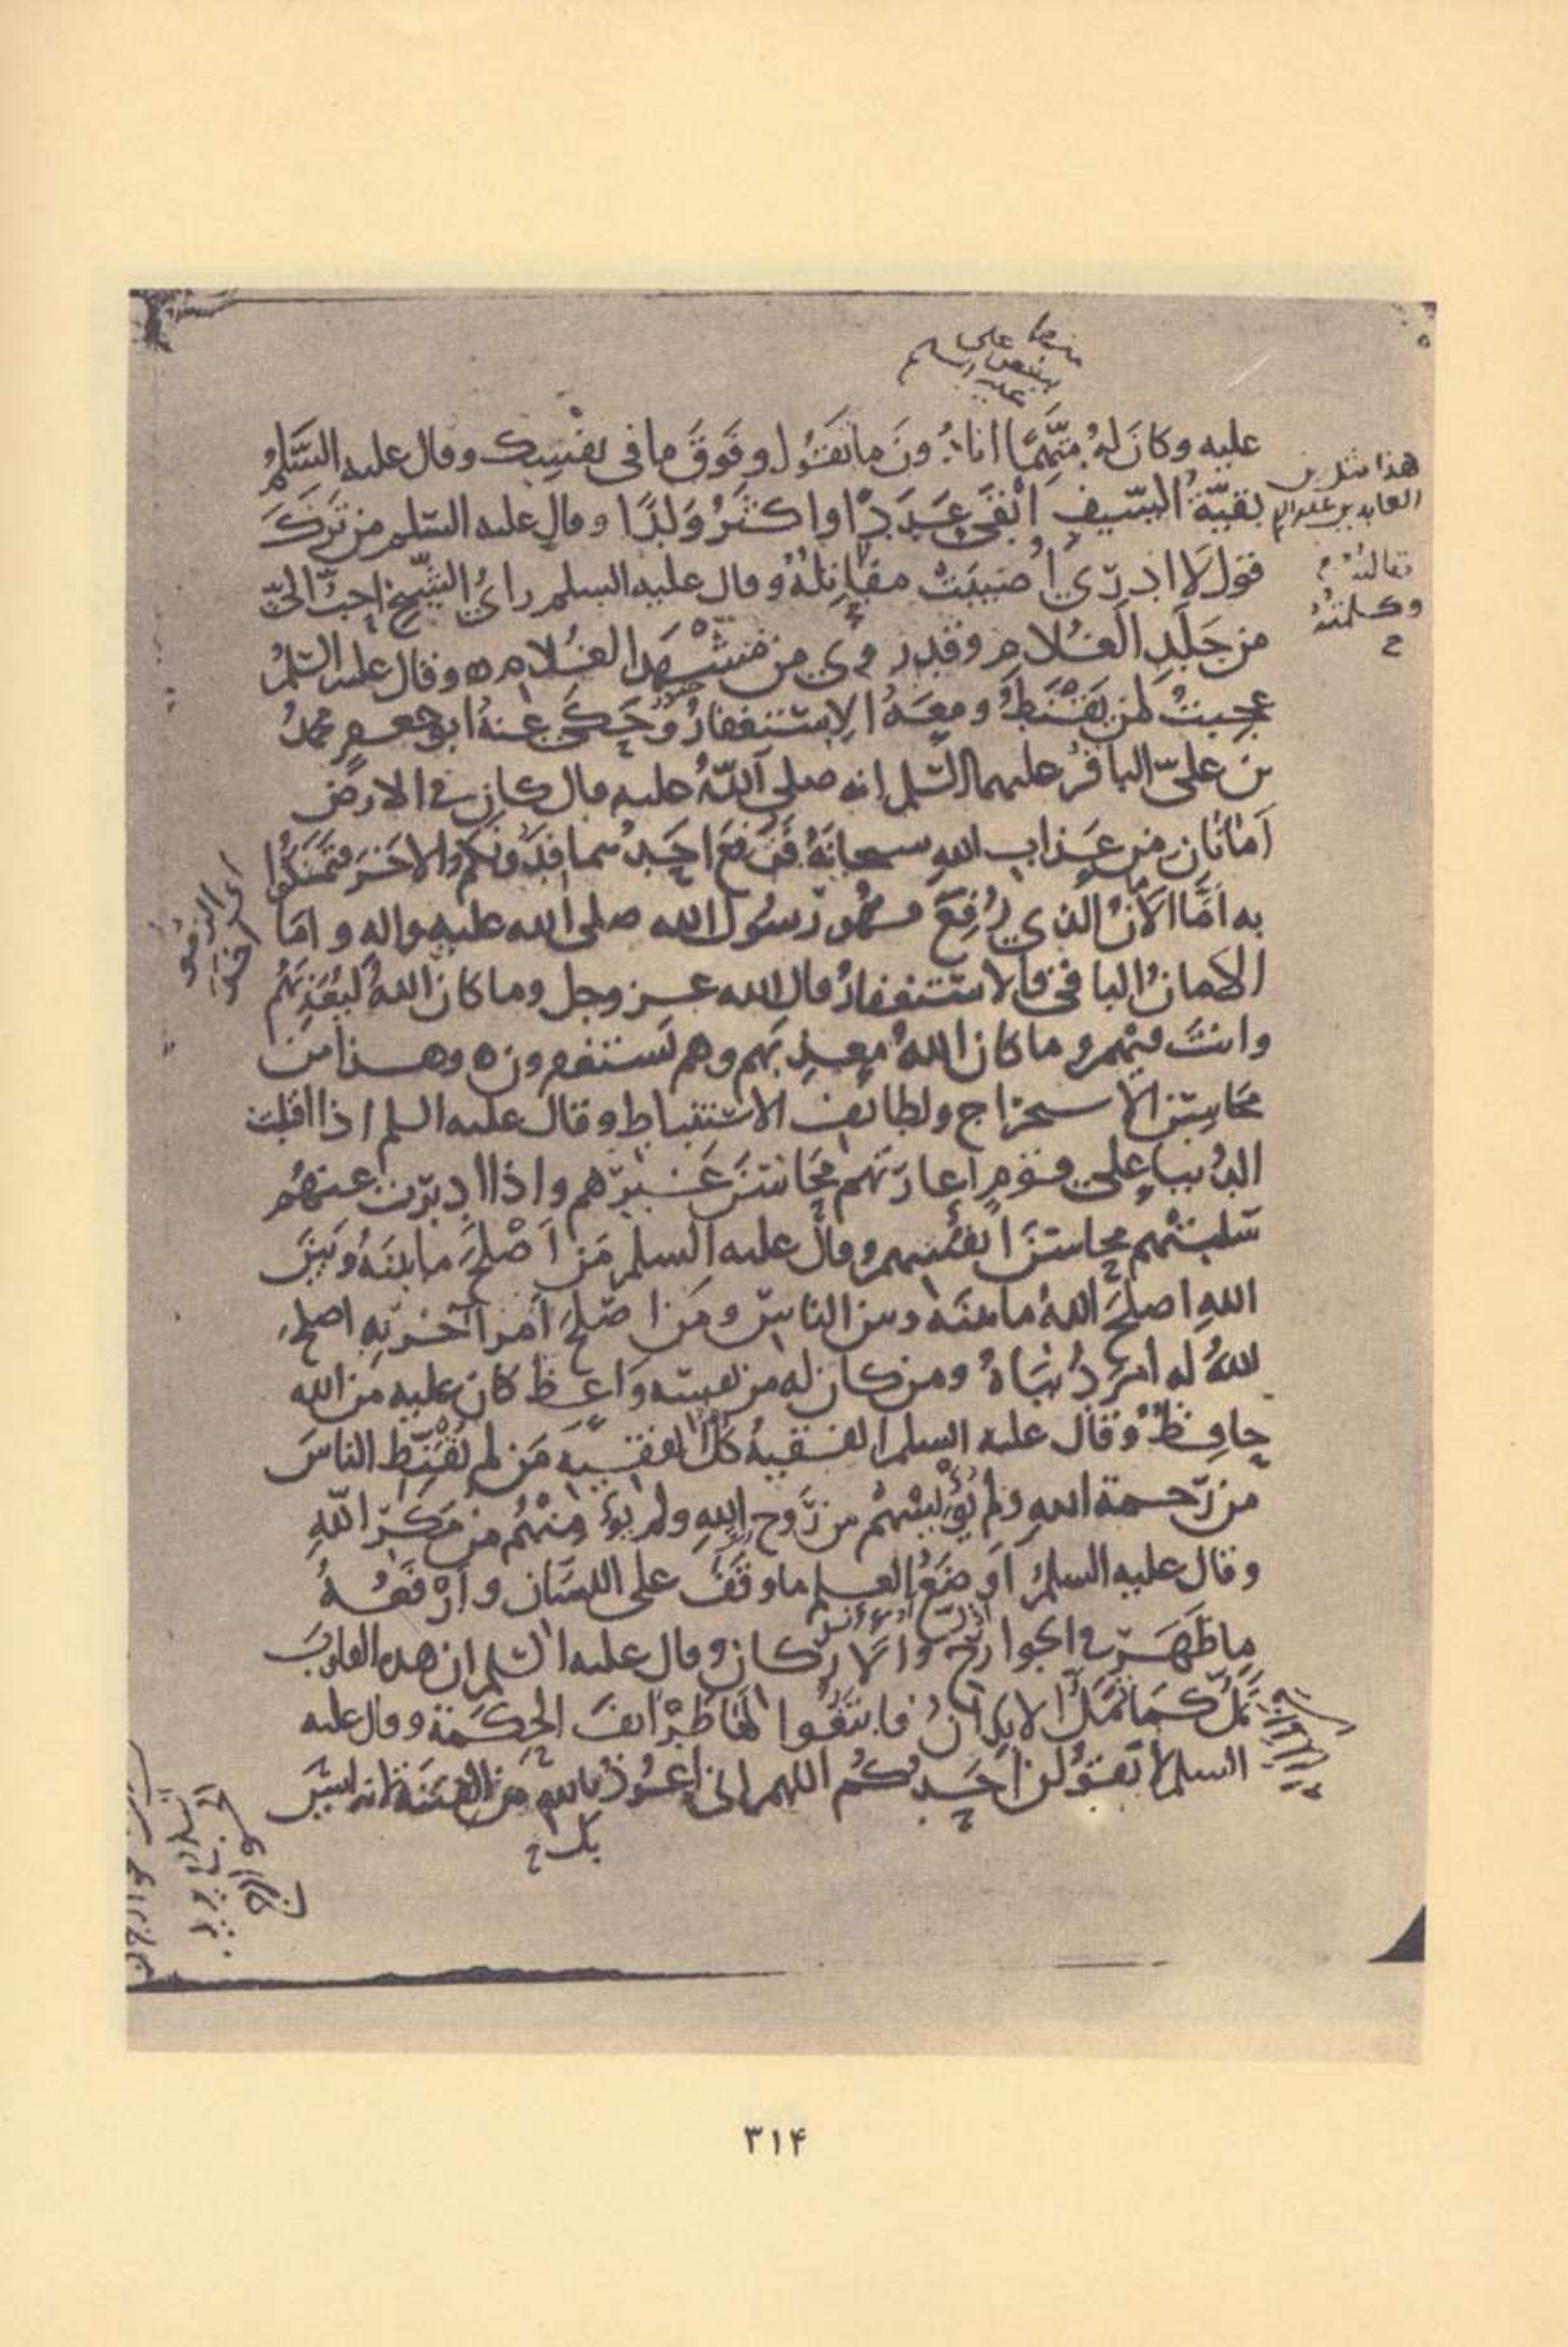 عليه وكان له متهما انا دون ما تقول وفوق ما فى نفسك وقال عليه السلم
بقية السيف انقى عددا واكثر ولدا وقال عليه السلم من ترك
قول لا ادرى اصيبت مقاتله وقال عليه السلم راى الشيخ احب الى
من جلد الغلام وقد روى من مشهد الغلام ه وقال عليه السلم
عجبت لمن يقنط ومعه الاستغفار وحكى عنه ابو جعفر محمد
بن على الباقر عليهما السلم انه صلى الله عليه قال كان فى الارض
امانان من عذاب الله سبحانه فرفع احدهما فدونكم الاخر فتمسكوا
به اما الامان الذى رفع فهو رسول الله صلى الله عليه واله واما
الامان الباقى فالاستغفار قال الله عز وجل وما كان الله ليعذبهم
وانت فيهم وما كان الله معذبهم وهم يستغفرون ه وهذا من
محاسن الاستخراج ولطائف الاستنباط وقال عليه السلم اذا اقبلت
الدنيا على قوم اعارتهم محاسن غيرهم واذا ادبرت عنهم
سلبتهم محاسن انفسهم وقال عليه السلم من اصلح ما بينه وبين
الله اصلح الله ما بينه وبين الناس ومن اصلح امر آخرته اصلح
الله له امر دنياه ومن كان له من نفسه واعظ كان عليه من الله
حافظ وقال عليه السلم الفقيه كل الفقيه من لم يقنط الناس
من رحمة الله ولم يؤيسهم من روح الله ولم يؤمنهم من مكر الله
وقال عليه السلم اوضع العلم ما وقف على اللسان وارفعه
ما ظهر فى الجوارح والاركان وقال عليه السلم ان هذه القلوب
تمل كما تمل الابدان فابتغوا لها طرائف الحكمة وقال عليه
السلم لا يقولن احدكم اللهم انى اعوذ بالله من الفتنة لانه ليس
بك ح
هذا مثل بن
العابدين
وكلمته
ح
٣١۴